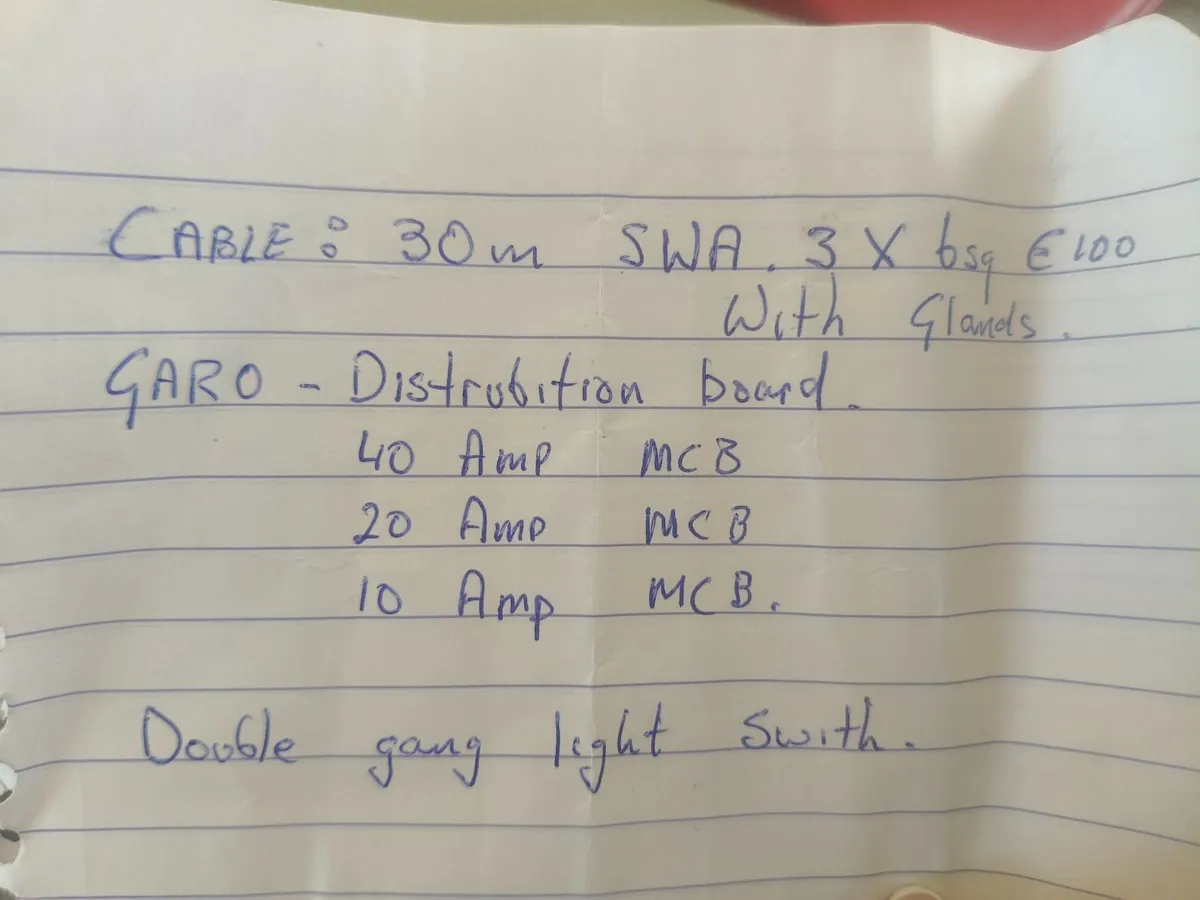 CABLE: 30m SWA. 3 X 6sq €100
With Glands.
GARO - Distrubition board.
40 Amp MCB
20 Amp MCB
10 Amp MCB.
Double gang light Swith.